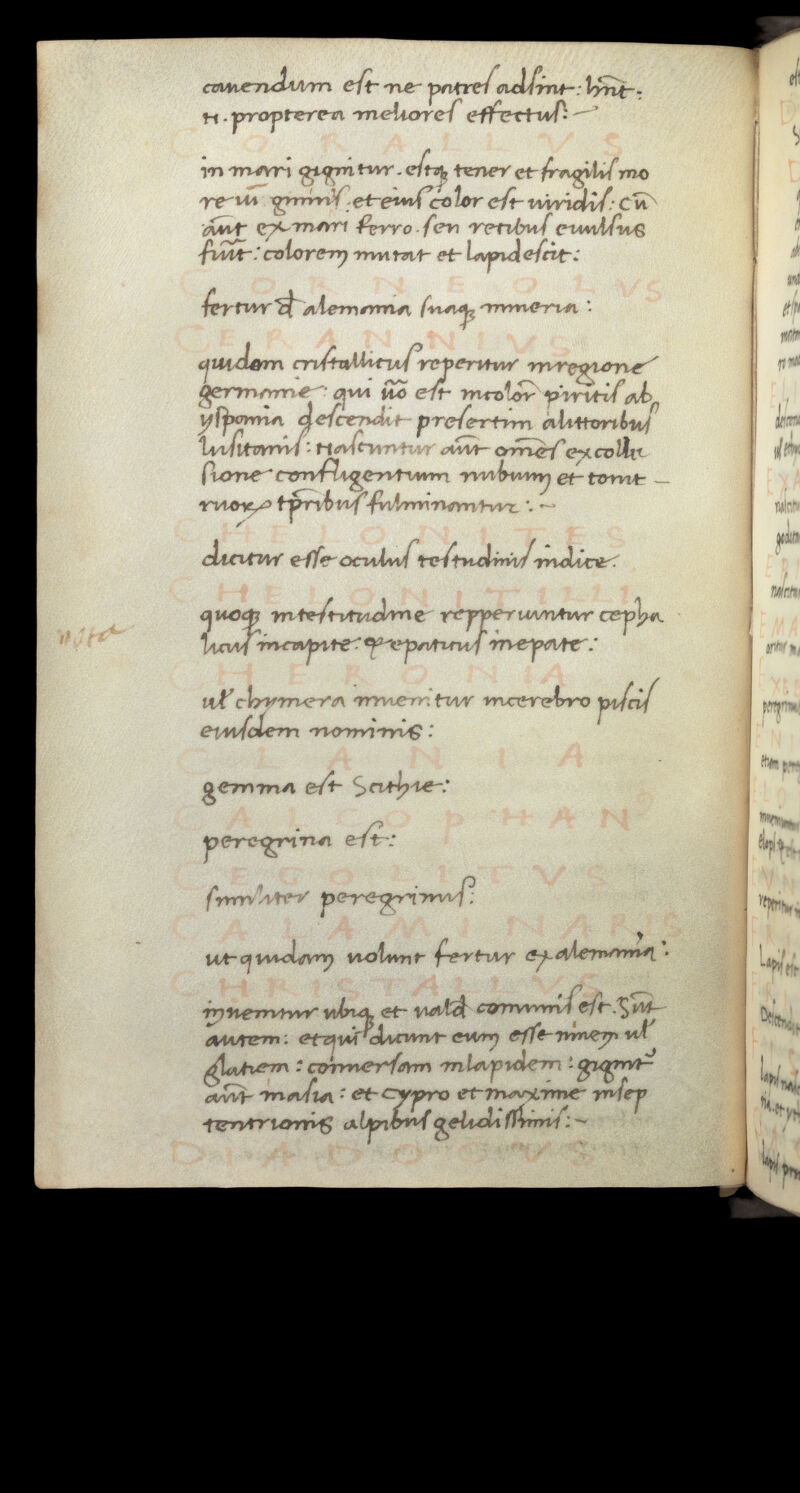 cauendum est ne patres adsint: hnt:
n. propterea meliores effectus:~
CORALLVS
in mari gignitur. estq; tener et fragilis mo
re et eius color est uiridis: Cū
aūt ex mari ferro. seu retibus euulsus
fuīt: colorem mutat et lapidescit:
CORNEOLVS
fertur đ alemania suaq; mineria:
CERANNIVS
quidam cristallicus reperitur in regione
germanie: qui ūo est incolor piritis ab
yspania descendit presertim alittoribus
lusitanis: nascuntur aūt omēs ex collu
sione confligentium nubium et tonit
ruoꝝ fulminantur:~
CHELONITES
dicitur esse oculus testudinis indice.
CHELONITILLI
quoq; intestitudine repperiuntur cepha
licus incapite: & epaticus inepate:
nota
CHERONIA
uł chymera inuenitur incerebro piscis
eiusdem nominis:
CLANIA
gemma est Scithie:
CALCOPHAN9
peregrina est:
CEGOLITVS
similiter peregrinus:
CALAMINARIS
ut quidam uolunt fertur ex alemania:
CHRISTALLVS
inuenitur ubiq; et uald comunis est. Sūt
autem: et qui dicunt eum esse niuem uł
glatiem: conuersam inlapidem: gignit~
aūt inasia: et Cypro et maxime insep
tentrionis alpibus gelidissimis:~
DIADOCVS